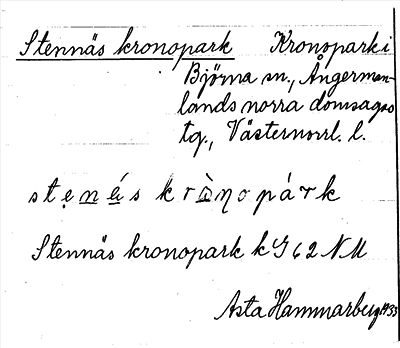 Stennäs kronopark Kronopark i
Björna sn., Ångerman-
lands norra domsagas
tg., Västernorrl. l.
stẹnés krànopárk
Stennäs kronopark k G 62 NM
Asta Hammarberg 1933